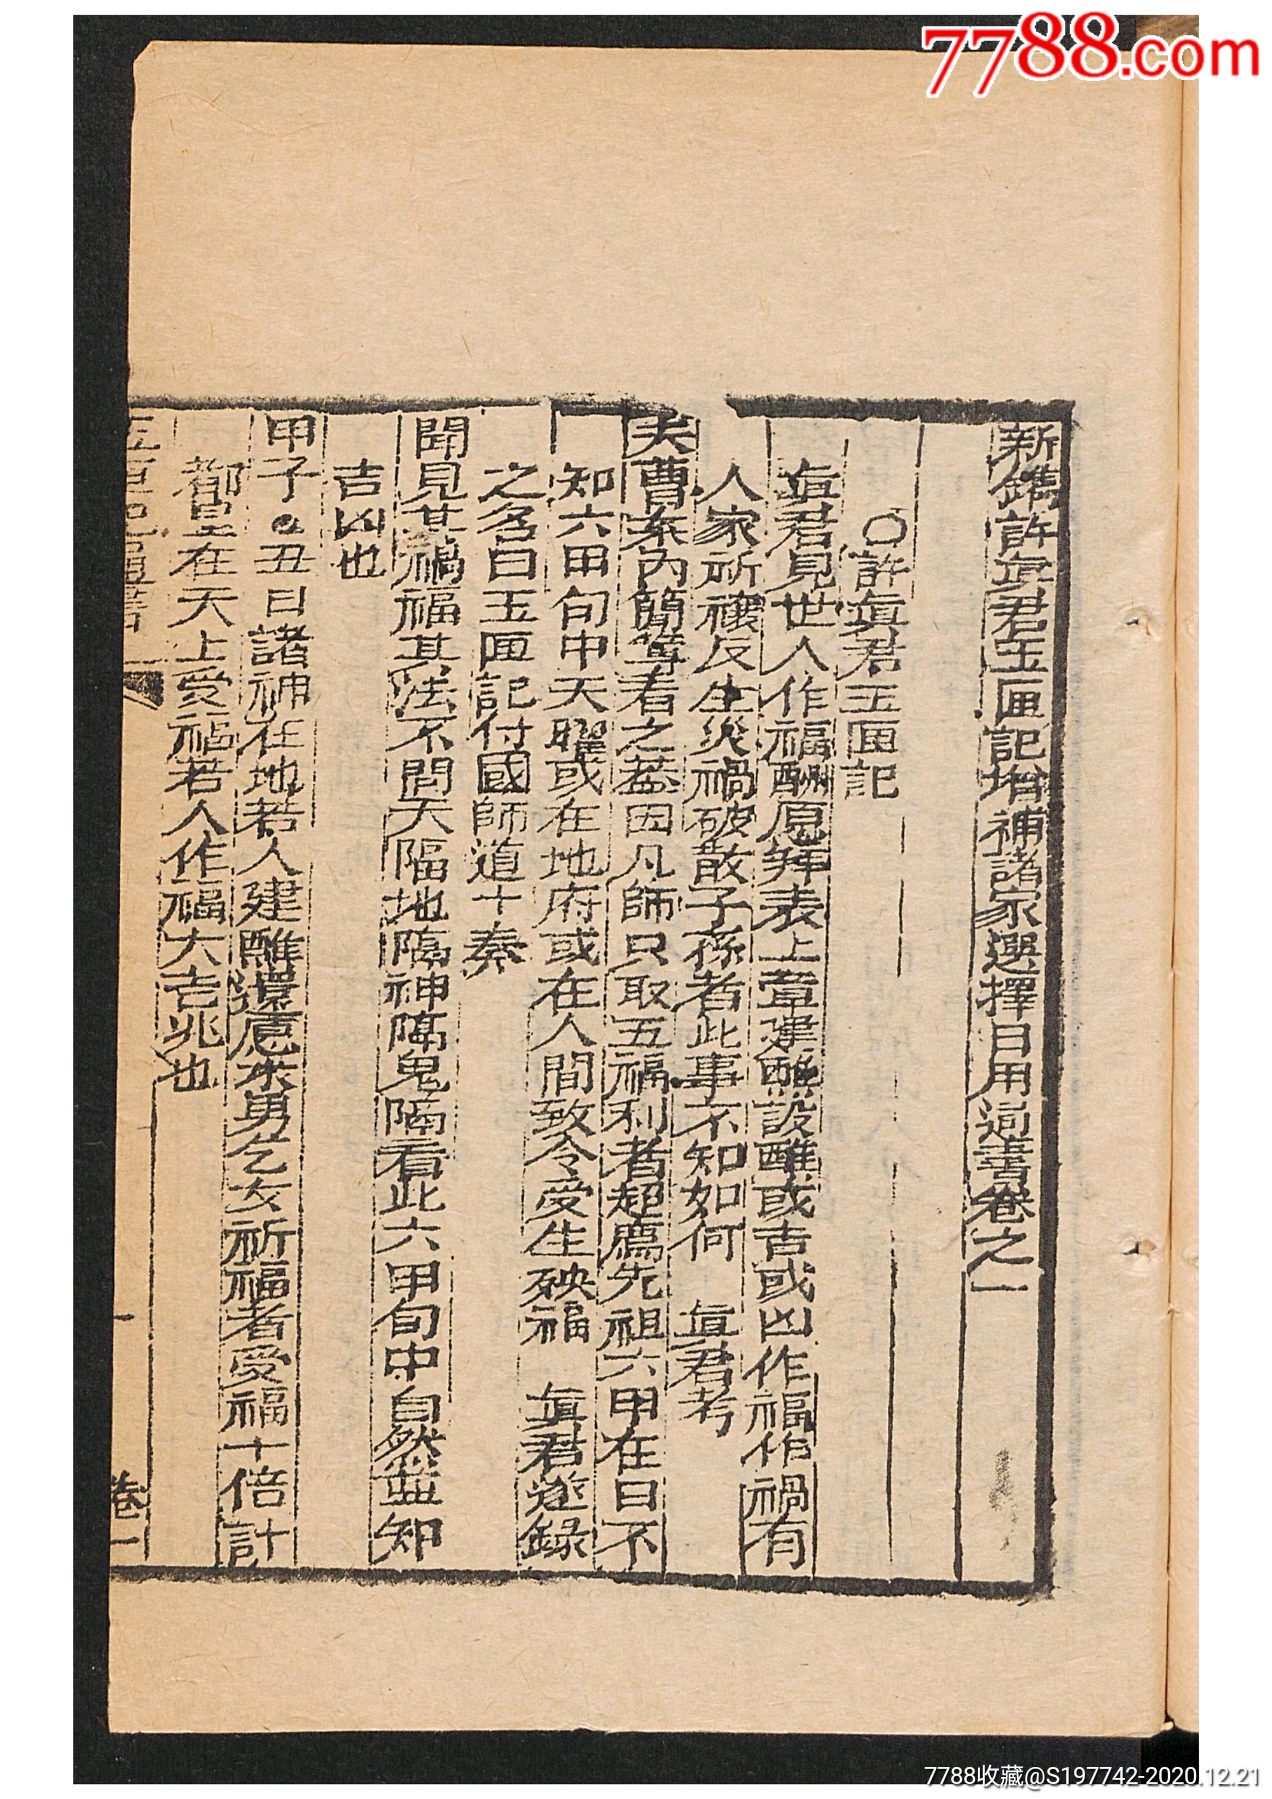 7788.com
新鐫許真君玉匣記增補諸家選擇日用通書卷之一
○許真君玉匣記
真君見世人作福酬愿拜表上章建醮設醮或吉或凶作福作禍有
人家祈禳反生災禍破散子孫者此事不知如何 真君考
天曹案內簡等看之蓋因凡師只取五福利者超薦先祖六甲在日不
知六甲旬中天曜或在地府或在人間致令受生殃福 真君遂錄
之名曰玉匣記付國師道十奏
聞見其禍福其法不問天隔地隔神隔鬼隔看此六甲旬中自然並知
吉凶也
甲子乙丑日諸神在地若人建醮還愿求男乞女祈福者受福十倍計
都皇在天上受福若人作福大吉兆也
玉匣記通書 一 一 卷一
7788收藏@S197742-2020.12.21